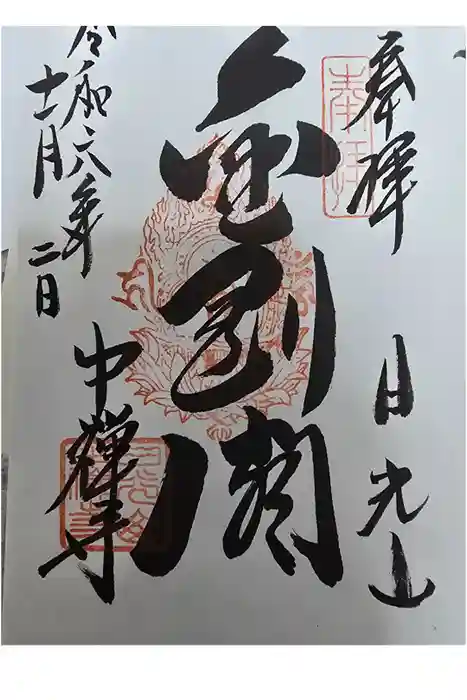 奉拝
日光山
金剛閣
令和六年
十一月二日
中禅寺